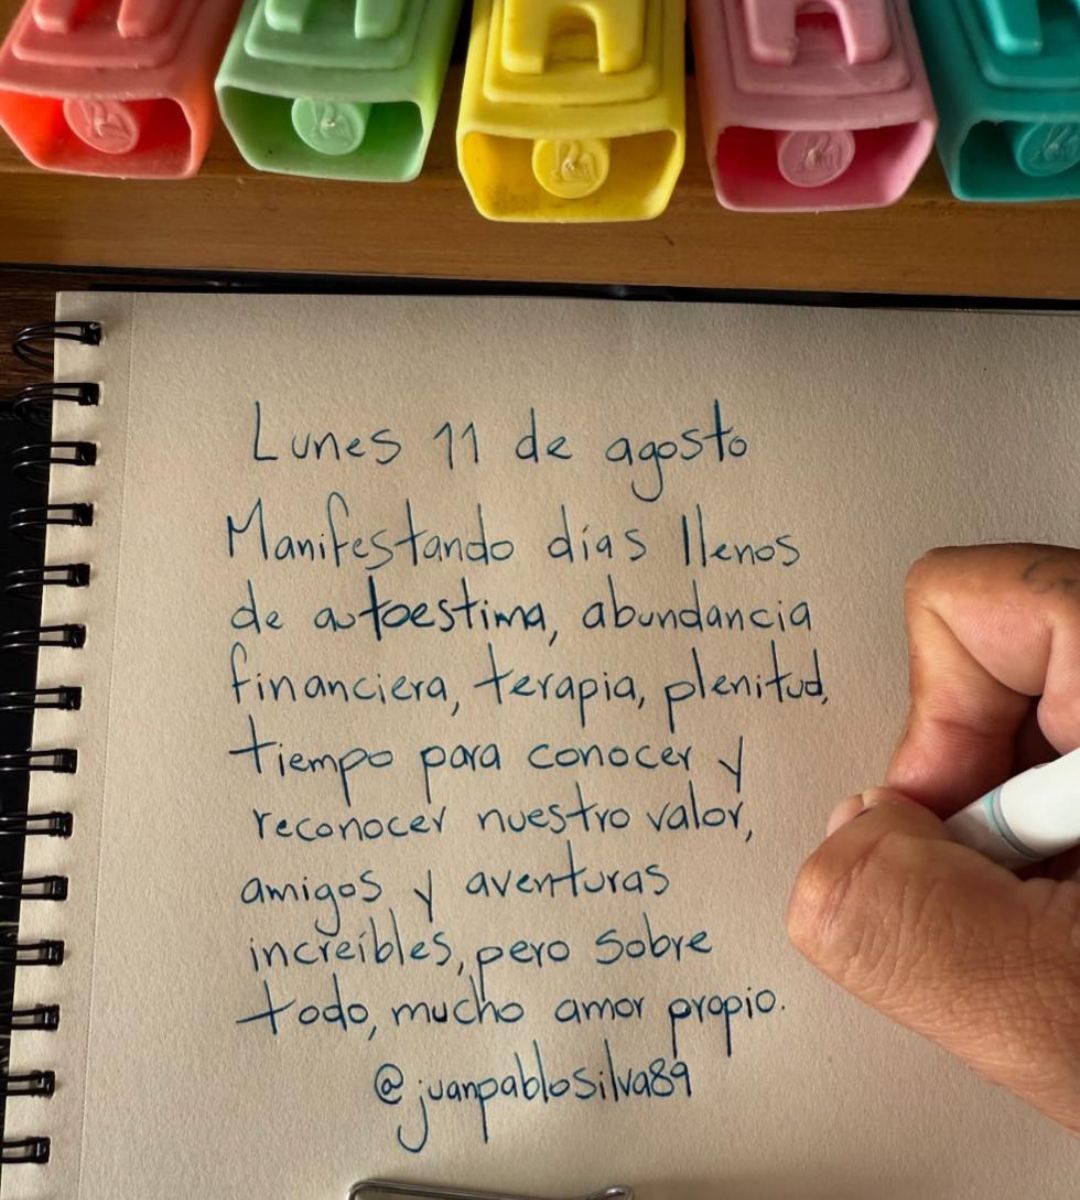 Lunes 11 de agosto
Manifestando días llenos
de autoestima, abundancia
financiera, terapia, plenitud,
tiempo para conocer y
reconocer nuestro valor,
amigos y aventuras
increíbles, pero sobre
todo, mucho amor propio.
@juanpablosilva89